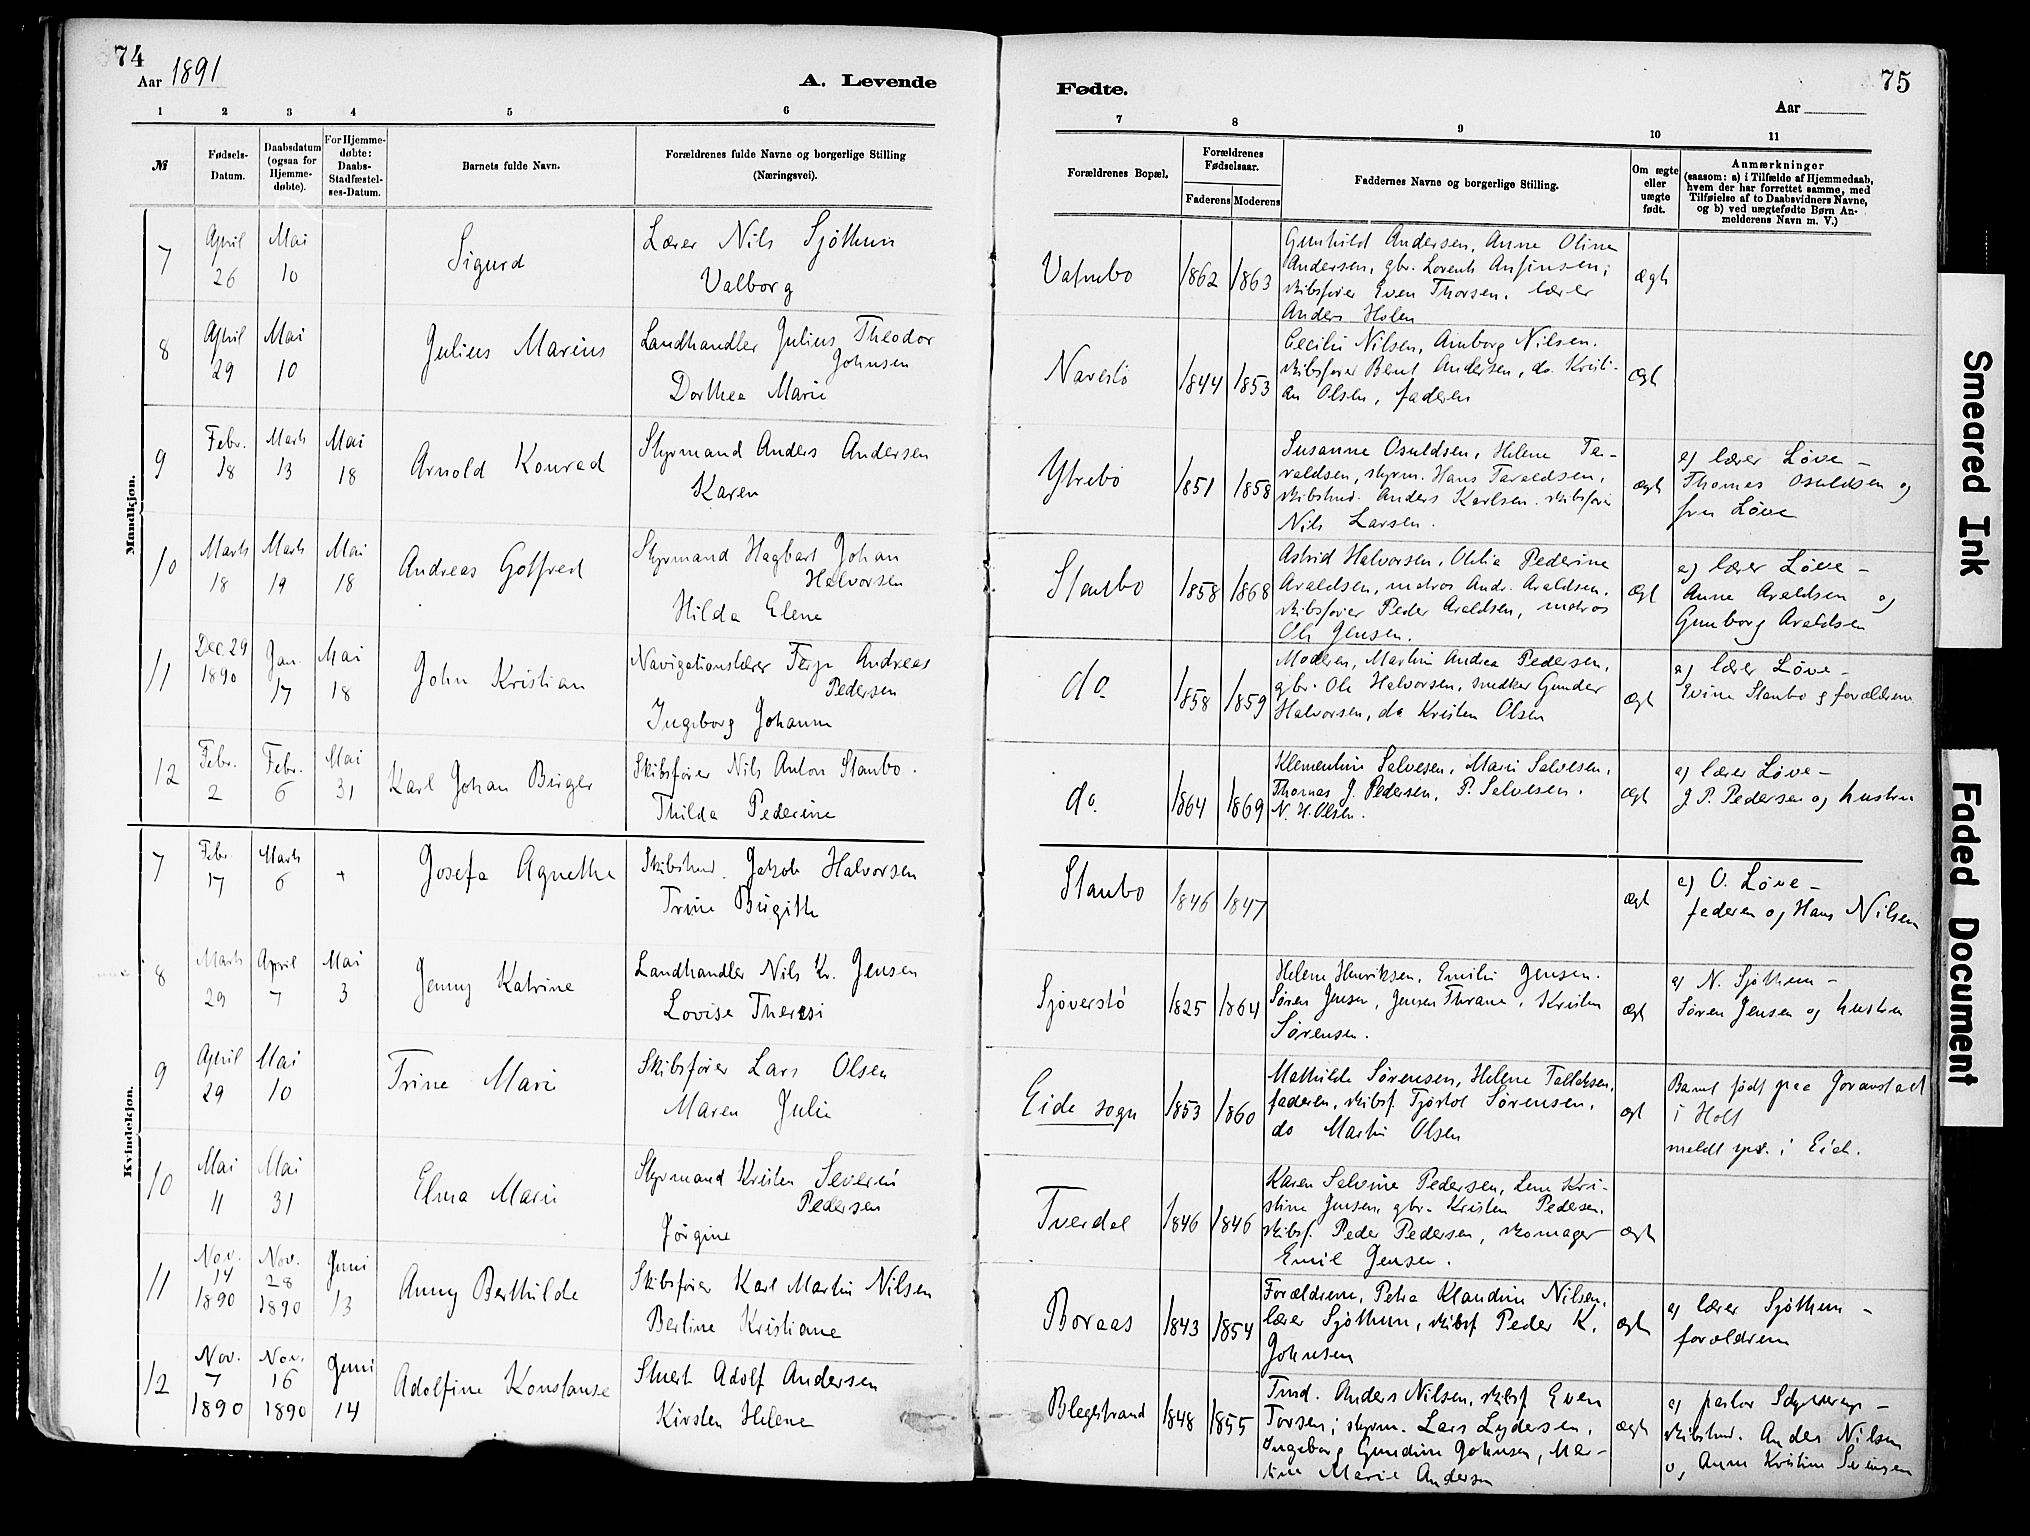 74
Aar 1891
A. Levende
1 2 3 4 5 6
№ Fødsels-Datum. Daabsdatum (ogsaa for Hjemme-døbte). For Hjemme-døbte: Daabs-Stadfæstel-ses-Datum. Barnets fulde Navn. Forældrenes fulde Navne og borgerlige Stilling (Næringsvei).
Mandkjøn.
7 April 26 Mai 10 Sigurd Lærer Nils Sjøthun
Valborg
8 April 29 Mai 10 Julius Marius Landhandler Julius Theodor
Johnsen
Dorthea Marie
9 Febr. 18 Marts 13 Mai 18 Arnold Konrad Styrmand Anders Andersen
Karen
10 Marts 18 Marts 19 Mai 18 Andreas Gotfred Styrmand Hagbart Johan
Halvorsen
Hilda Elene
11 Dec. 29 1890 Jan. 17 Mai 18 John Kristian Navigationslærer Terje Andreas
Pedersen
Ingeborg Johanne
12 Febr. 2 Febr. 6 Mai 31 Karl Johan Birger Skibsfører Nils Anton Staubo.
Thilda Pederine
Kvindekjøn.
7 Febr. 17 Marts 6 + Josefa Agnethe Skibstmd. Jakob Halvorsen
Trine Birgitte
8 Marts 29 April 7 Mai 3 Jenny Katrine Landhandler Nils Kr. Jensen
Lovise Theresi
9 April 29 Mai 10 Trine Marie Skibsfører Lars Olsen
Maren Julie
10 Mai 11 Mai 31 Elma Marie Styrmand Kristen Severin
Pedersen
Jørgine
11 Nov. 14 1890 Nov. 28 1890 Juni 13 Anny Berthilde Skibsfører Karl Martin Nilsen
Berline Kristiane
12 Nov. 7 1890 Nov. 16 1890 Juni 14 Adolfine Konstanse Stuert Adolf Andersen
Kirsten Helene
75
Fødte.
Aar
7 8 9 10 11
Forældrenes Bopæl. Forældrenes Fødselsaar. Faderens Moderens Faddernes Navne og borgerlige Stilling. Om ægte eller uægte født. Anmærkninger
(saasom: a) i Tilfælde af Hjemmedaab,
hvem der har forrettet samme, med
Tilføielse af to Daabsvidners Navne,
og b) ved uægtefødte Børn An-
melderens Navn m. V.)
Vatnebo 1862 1863 Gunhild Andersen, Anne Oline
Andersen, gbr. Lorents Anfinsen;
skibsfører Even Thorsen, lærer
Anders Holen ægte
Navestø 1844 1853 Cecilie Nilsen, Amborg Nilsen.
skibsfører Bent Andersen, do. Kristi-
an Olsen, faderen ægt
Ytrebø 1851 1858 Susanne Osuldsen, Helene Ta-
raldsen, styrm. Hans Taraldsen,
skibstmd. Anders Karlsen. skibsfører
Nils Larsen. ægt a) lærer Løve –
Thomas Osuldsen og
fru Løve
Staubo 1858 1868 Astrid Halvorsen, Otilia Pederine
Araldsen, matros Andr. Araldsen,
skibsfører Peder Araldsen, matros
Ole Jensen. ægt a) lærer Løve –
Anne Araldsen og
Gunborg Araldsen
do. 1858 1859 Moderen, Martin Andrea Pedersen,
gbr. Ole Halvorsen, snedker Gunder
Halvorsen, do Kristen Olsen ægt a) lærer Løve –
Evine Staubo og forældrene
do. 1864 1869 Klementine Salvesen, Marie Salvesen,
Thomas J. Pedersen, P. Salvesen.
N. H. Olsen. ægt a) lærer Løve –
J. P. Pedersen og hustru
Staubo 1846 1847 ægt a) O. Løve –
faderen og Hans Nilsen
Sjøverstø 1825 1864 Helene Henriksen, Emilie Jensen.
Søren Jensen, Jensen Thrane, Kristen
Sørensen. ægt a) N. Sjøthun –
Søren Jensen og hustru
Eide sogn 1853 1860 Mathilde Sørensen, Helene Tallaksen,
faderen, skibsf. Tjøstol Sørensen,
do Martin Olsen ægt Barnet født paa Goranstad
i Holt
meldt spr. i Eide.
Tverdal 1846 1846 Karen Salvine Pedersen, Lene Kri-
stine Jensen, gbr. Kristen Pedersen,
skibsf. Peder Pedersen, skomager
Emil Jensen. ægt
Boraas 1843 1854 Forældrene, Petra Klandine Nilsen,
lærer Sjøthun, skibsf Peder K.
Johnsen ægt a) lærer Sjøthun –
forældrene
Blegestrand 1848 1855 Tmd. Anders Nilsen, skibsf Even
Torsen; styrm. Lars Lydersen,
Ingeborg Gundine Johnsen, Mar-
tine Marie Andersen ægt a) pastor –
skibstmd. Anders Nilsen
og Anne Kristine
Smeared Ink
Faded Document